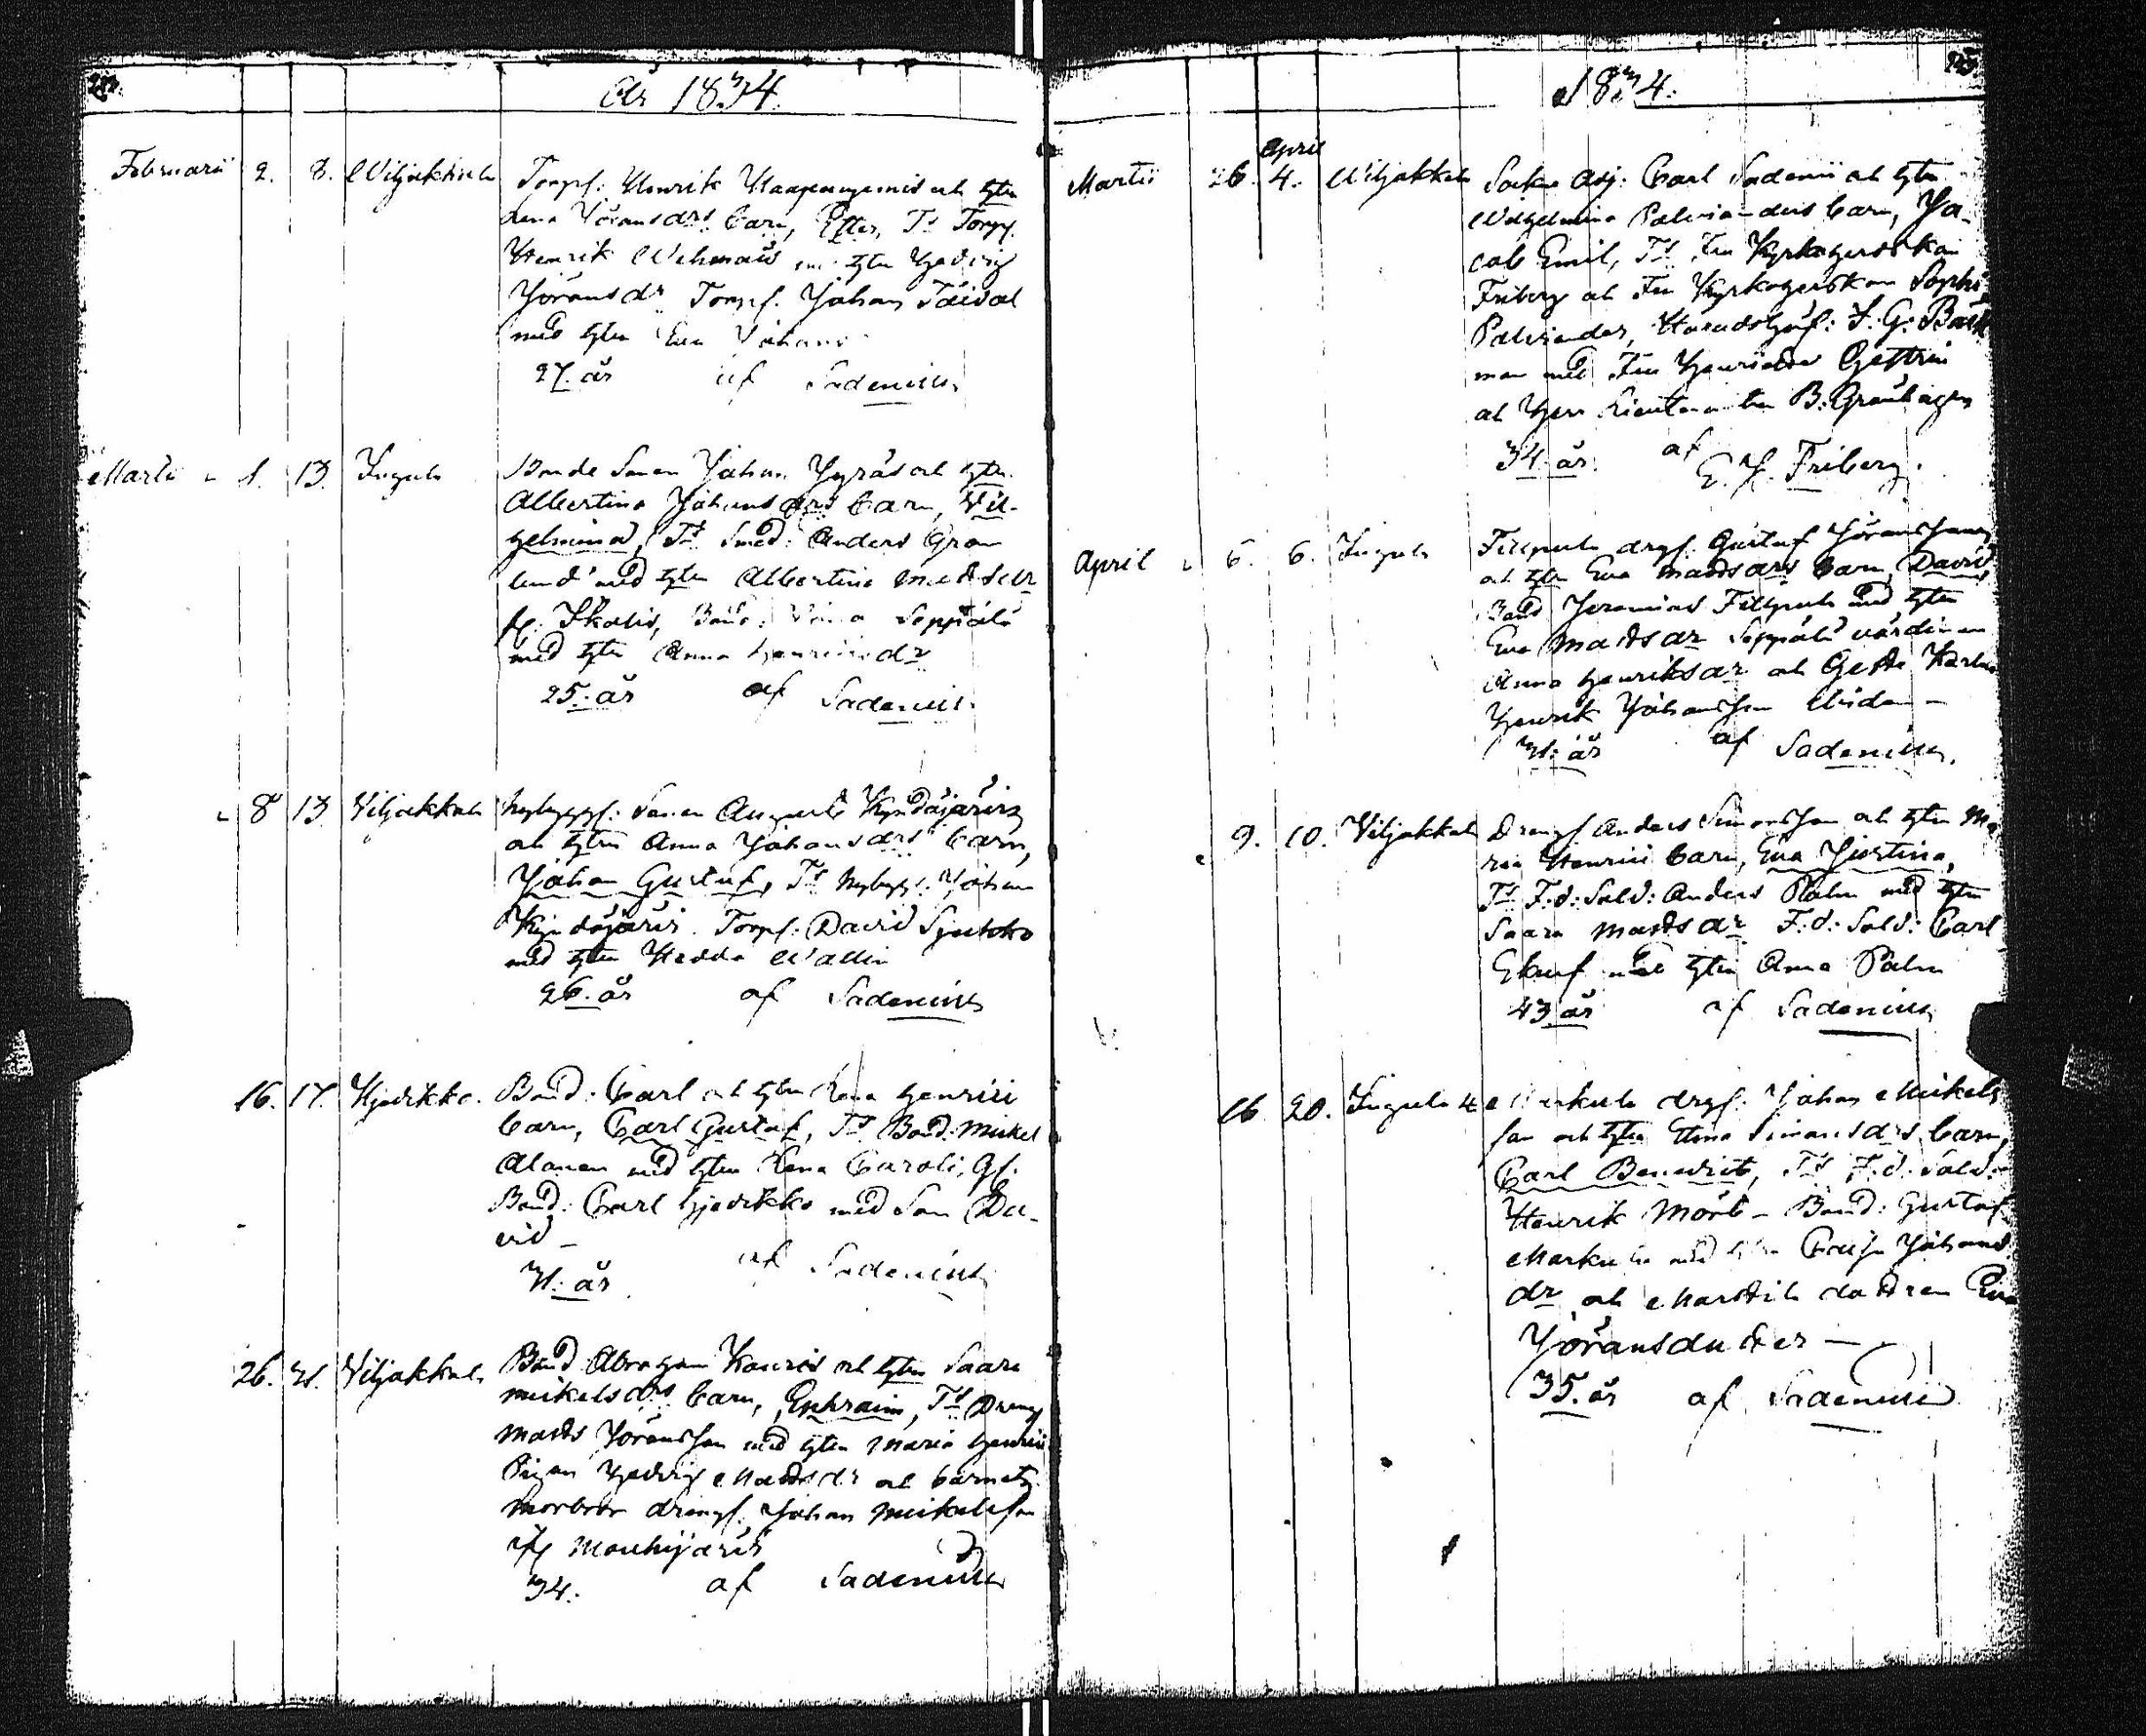 År 1834.
Februarii 2. 8. Wiljakkala Torpf: Henrik Haapaniemis och htru
Lena Jöransdrs Barn, Ester, Ts Torpf.
Henrik Wehmais med htru Hedvig
Jöransdr Torpf. Johan Taival
med htru Eva Johans
27. år af Sadenius
Martii 1. 13. Ingula Bonde Sonen Johan Hyräs och htru
Albertina Johansdrs Barn, Vil-
helmina, Ts Smed: Anders Gran
lund med htru Albertina
fr. Ikalis, Bond: Seppälä
med htru Anna Henriksdr
25. år af Sadenius
8 13 Viljakkala Nybyggf: Sonen August Kyndäjärvi
och htrus Anna Johansdrs Barn,
Johan Gustaf, Ts Nybygg: Johan
Kyndäjärvi. Torpf: David
med htru Hedda Wallin
26. år af Sadenius
16. 17. Hjerikko. Bond: Carl och htru Lena Henrici
Barn, Carl Gustaf, Ts Bond: Mickel
Alanen med htru Lena Caroli, Gf.
Bond: Carl Hjerikko med Son Da-
vid _
31. år af Sadenius
26. 31. Viljakkala Bond Abraham Kauris och htru Saara
Mickelsdrs Barn, Ephraim, Ts Dreng
Matts Jöransson med htru Maria Henrici
Pigan Hedvig Mattsdr och barnets
Morbror drengf: Johan Mickelsson
ifr Mouhijärvi
34. af Sadenius
1834.
Martii 26. April 4. Wiljakkala Socken Adj: Carl Sadenii och htru
Wilhelmina Palvianders Barn, Ja-
cob Emil, Ts Fru Kyrkoherdskan
Friberg och Fru Kyrkoherdskan Sophi
Palviander, Häradshöf: J. G. Back
man med Fru Henriette
och Herr Lieutenanten B. Granhagen
34. år. af E. J. Friberg.
April 5. 6. Ingula Fillpula drgf. Gustaf Jöransson
och htru Eva Mattsdrs Barn, David,
Bond Jeremias Fillpula med htru
Eva Mattsdr Seppälä värdinnan
Anna Henriksdr och Karlen
Henrik Johansson
31. år af Sadenius.
9. 10. Viljakkala Drengf Anders Simonsson och htru Ma
ria Henrici Barn, Eva Justina,
Ts F.d: Sold: Anders Palm med htru
Saara Mattsdr F.d: Sold: Carl
med htru Anna Palm
43 år af Sadenius
16 20. Ingula Markula drgf: Johan Mickels
son och htru Simonsdrs Barn,
Carl Benedict, Ts F.d. Sold:
Henrik Mört - Bond: Gustaf
Markula med htru Caisa Johans
dr och Marttila dottren Eva
Jöransdotter —
35. år af Sadenius